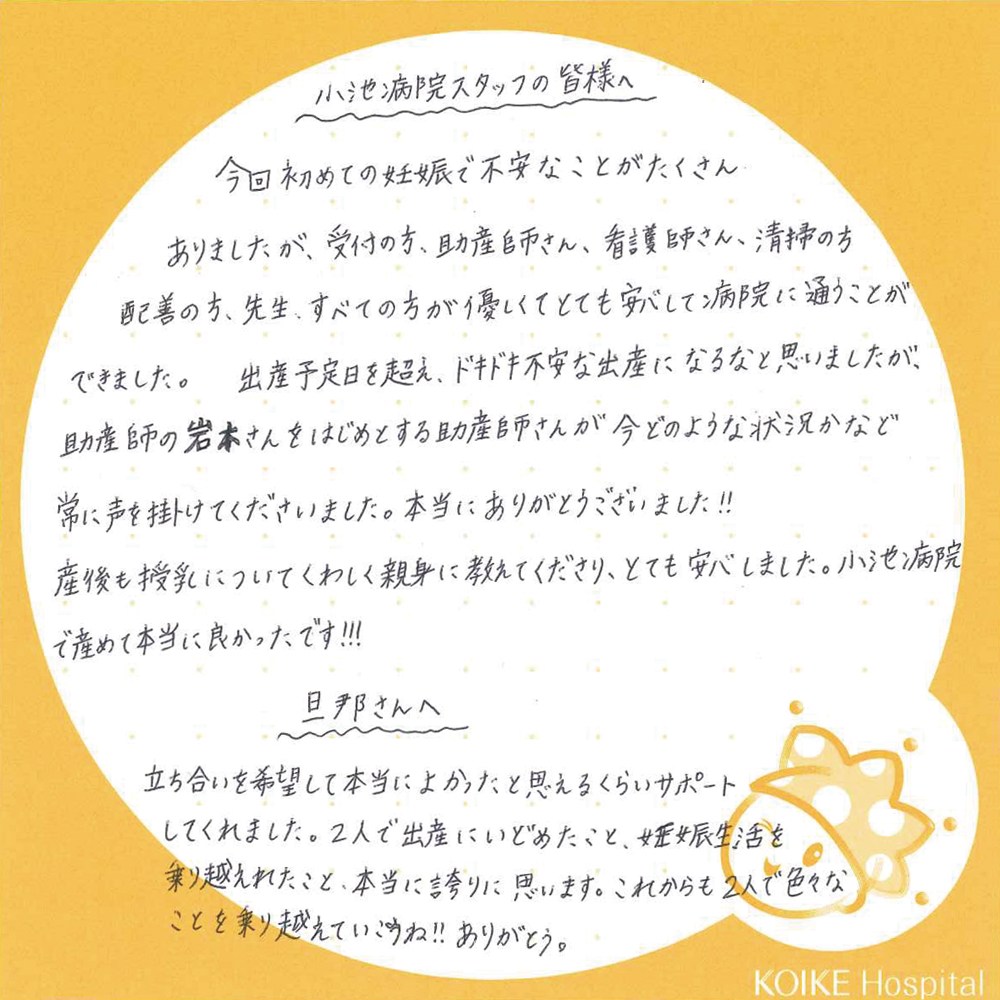 小池病院スタッフの皆様へ
今回初めての妊娠で不安なことがたくさん
ありましたが、受付の方、助産師さん、看護師さん、清掃の方
配善の方、先生、すべての方が優しくてとても安心して病院に通うことが
できました。 出産予定日を超え、ドキドキ不安な出産になるなと思いましたが、
助産師の岩本さんをはじめとする助産師さんが今どのような状況かなど
常に声を掛けてくださいました。本当にありがとうございました!!
産後も授乳についてくわしく親身に教えてくださり、とても安心しました。小池病院
で産めて本当に良かったです!!!
旦那さんへ
立ち合いを希望して本当によかったと思えるくらいサポート
してくれました。2人で出産にいどめたこと、妊娠生活を
乗り越えれたこと、本当に誇りに思います。これからも2人で色々な
ことを乗り越えていこうね!!ありがとう。
KOIKE Hospital